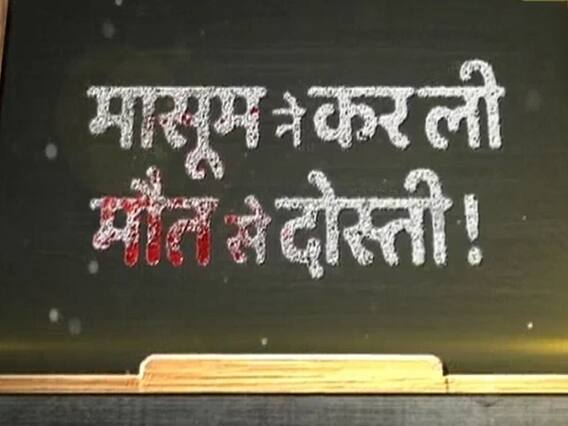 मासूम ने कर ली
मौत से दोस्ती!